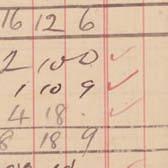 16 12 6
2 10 0
1 10 9
4 18 .
8 18 9